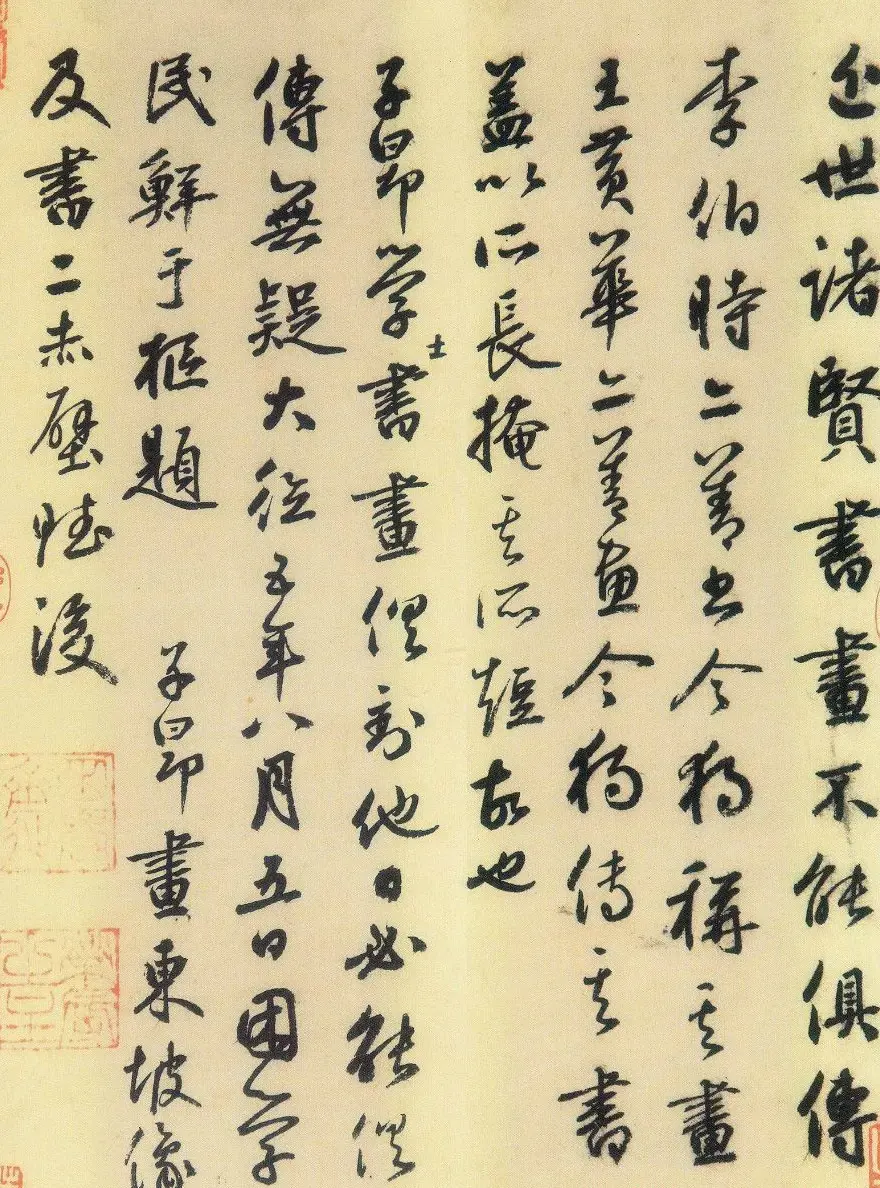 近世諸賢書畫不能俱傳
李伯時亦善书今獨稱其畫
王黃華亦善畫今獨傳其書
蓋以所長掩其所短故也
子昂學士書畫俱到他日必能俱
傳無疑大德五年八月五日困學
民鮮于樞題 子昂畫東坡像
及書二赤壁賦後